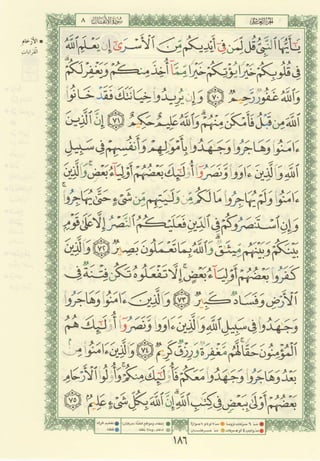 سورة الأنفال ٨
يَـٰٓأَيُّهَا ٱلنَّبِىُّ قُل لِّمَن فِىٓ أَيْدِيكُم مِّنَ ٱلْأَسْرَىٰٓ إِن يَعْلَمِ ٱللَّهُ
فِى قُلُوبِكُمْ خَيْرًا يُؤْتِكُمْ خَيْرًا مِّمَّآ أُخِذَ مِنكُمْ وَيَغْفِرْ لَكُمْ
وَٱللَّهُ غَفُورٌ رَّحِيمٌ ٧٠ وَإِن يُرِيدُوا۟ خِيَانَتَكَ فَقَدْ خَانُوا۟
ٱللَّهَ مِن قَبْلُ فَأَمْكَنَ مِنْهُمْ وَٱللَّهُ عَلِيمٌ حَكِيمٌ ٧١ إِنَّ ٱلَّذِينَ
ءَامَنُوا۟ وَهَاجَرُوا۟ وَجَـٰهَدُوا۟ بِأَمْوَٰلِهِمْ وَأَنفُسِهِمْ فِى سَبِيلِ
ٱللَّهِ وَٱلَّذِينَ ءَاوَوا۟ وَّنَصَرُوٓا۟ أُو۟لَـٰٓئِكَ بَعْضُهُمْ أَوْلِيَآءُ بَعْضٍ وَٱلَّذِينَ
ءَامَنُوا۟ وَلَمْ يُهَاجِرُوا۟ مَا لَكُم مِّن وَلَـٰيَتِهِم مِّن شَىْءٍ حَتَّىٰ يُهَاجِرُوا۟
وَإِنِ ٱسْتَنصَرُوكُمْ فِى ٱلدِّينِ فَعَلَيْكُمُ ٱلنَّصْرُ إِلَّا عَلَىٰ قَوْمٍ
بَيْنَكُمْ وَبَيْنَهُم مِّيثَـٰقٌ وَٱللَّهُ بِمَا تَعْمَلُونَ بَصِيرٌ ٧٢ وَٱلَّذِينَ
كَفَرُوا۟ بَعْضُهُمْ أَوْلِيَآءُ بَعْضٍ إِلَّا تَفْعَلُوهُ تَكُن فِتْنَةٌ فِى
ٱلْأَرْضِ وَفَسَادٌ كَبِيرٌ ٧٣ وَٱلَّذِينَ ءَامَنُوا۟ وَهَاجَرُوا۟
وَجَـٰهَدُوا۟ فِى سَبِيلِ ٱللَّهِ وَٱلَّذِينَ ءَاوَوا۟ وَّنَصَرُوٓا۟ أُو۟لَـٰٓئِكَ هُمُ
ٱلْمُؤْمِنُونَ حَقًّا لَّهُم مَّغْفِرَةٌ وَرِزْقٌ كَرِيمٌ ٧٤ وَٱلَّذِينَ ءَامَنُوا۟ مِنۢ
بَعْدُ وَهَاجَرُوا۟ وَجَـٰهَدُوا۟ مَعَكُمْ فَأُو۟لَـٰٓئِكَ مِنكُمْ وَأُو۟لُوا۟ ٱلْأَرْحَامِ
بَعْضُهُمْ أَوْلَىٰ بِبَعْضٍ فِى كِتَـٰبِ ٱللَّهِ إِنَّ ٱللَّهَ بِكُلِّ شَىْءٍ عَلِيمٌۢ ٧٥
١٨٦